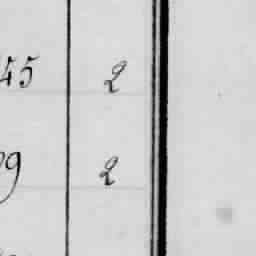 45 2
9 2